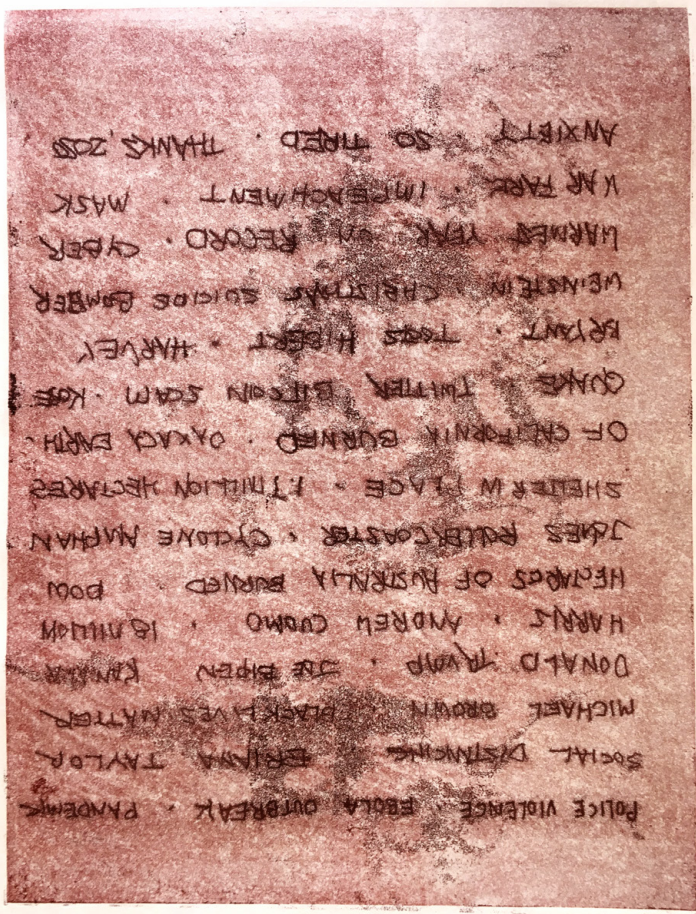 POLICE VIOLENCE · EBOLA OUTBREAK · PANDEMIC
SOCIAL DISTANCING · BRIANNA TAYLOR
MICHAEL BROWN · BLACK LIVES MATTER
DONALD TRUMP · JOE BIDEN KAMALA
HARRIS · ANDREW CUOMO · 18 MILLION
HECTARES OF AUSTRALIA BURNED DOW
JONES ROLLERCOASTER · CYCLONE AMPHAN
SHELTER IN PLACE · 1.7 MILLION HECTARES
OF CALIFORNIA BURNED · OAXACA EARTH
QUAKE · TWITTER BITCOIN SCAM · KOBE
BRYANT · TOOTS HIBERT · HARVEY
WEINSTEIN · CHRISTMAS SUICIDE BOMBER
WARMEST YEAR ON RECORD · CYBER
WAR FARE · IMPEACHMENT · MASK
ANXIETY · SO TIRED · THANKS, 2020